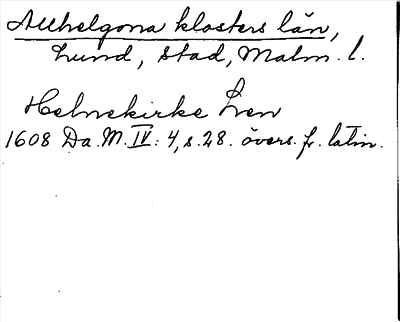 Allhelgona klosters län,
Lund, stad, Malm. l.
Helnekirke Len
1608 Da. M. IV: 4, s. 28. övers. fr. latin.